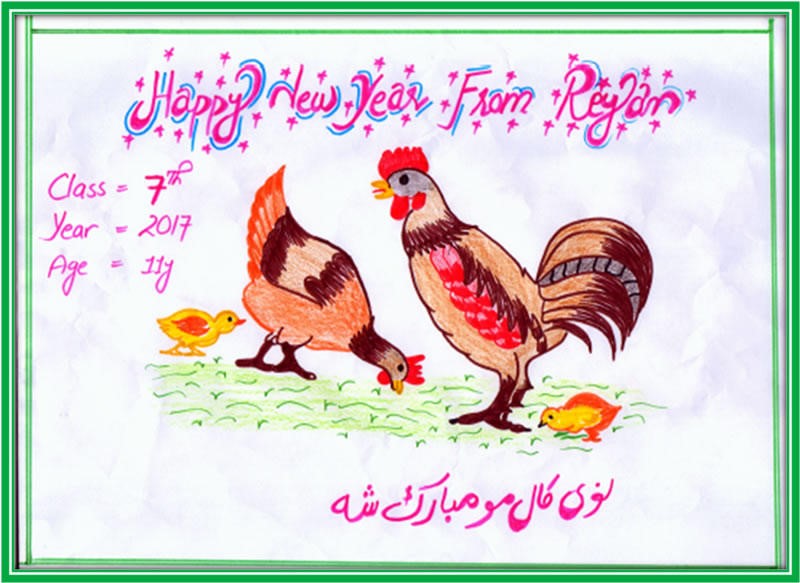 Happy New Year From Reyan
Class = 7th
Year = 2017
Age = 11y
نوی کال مو مبارک شه